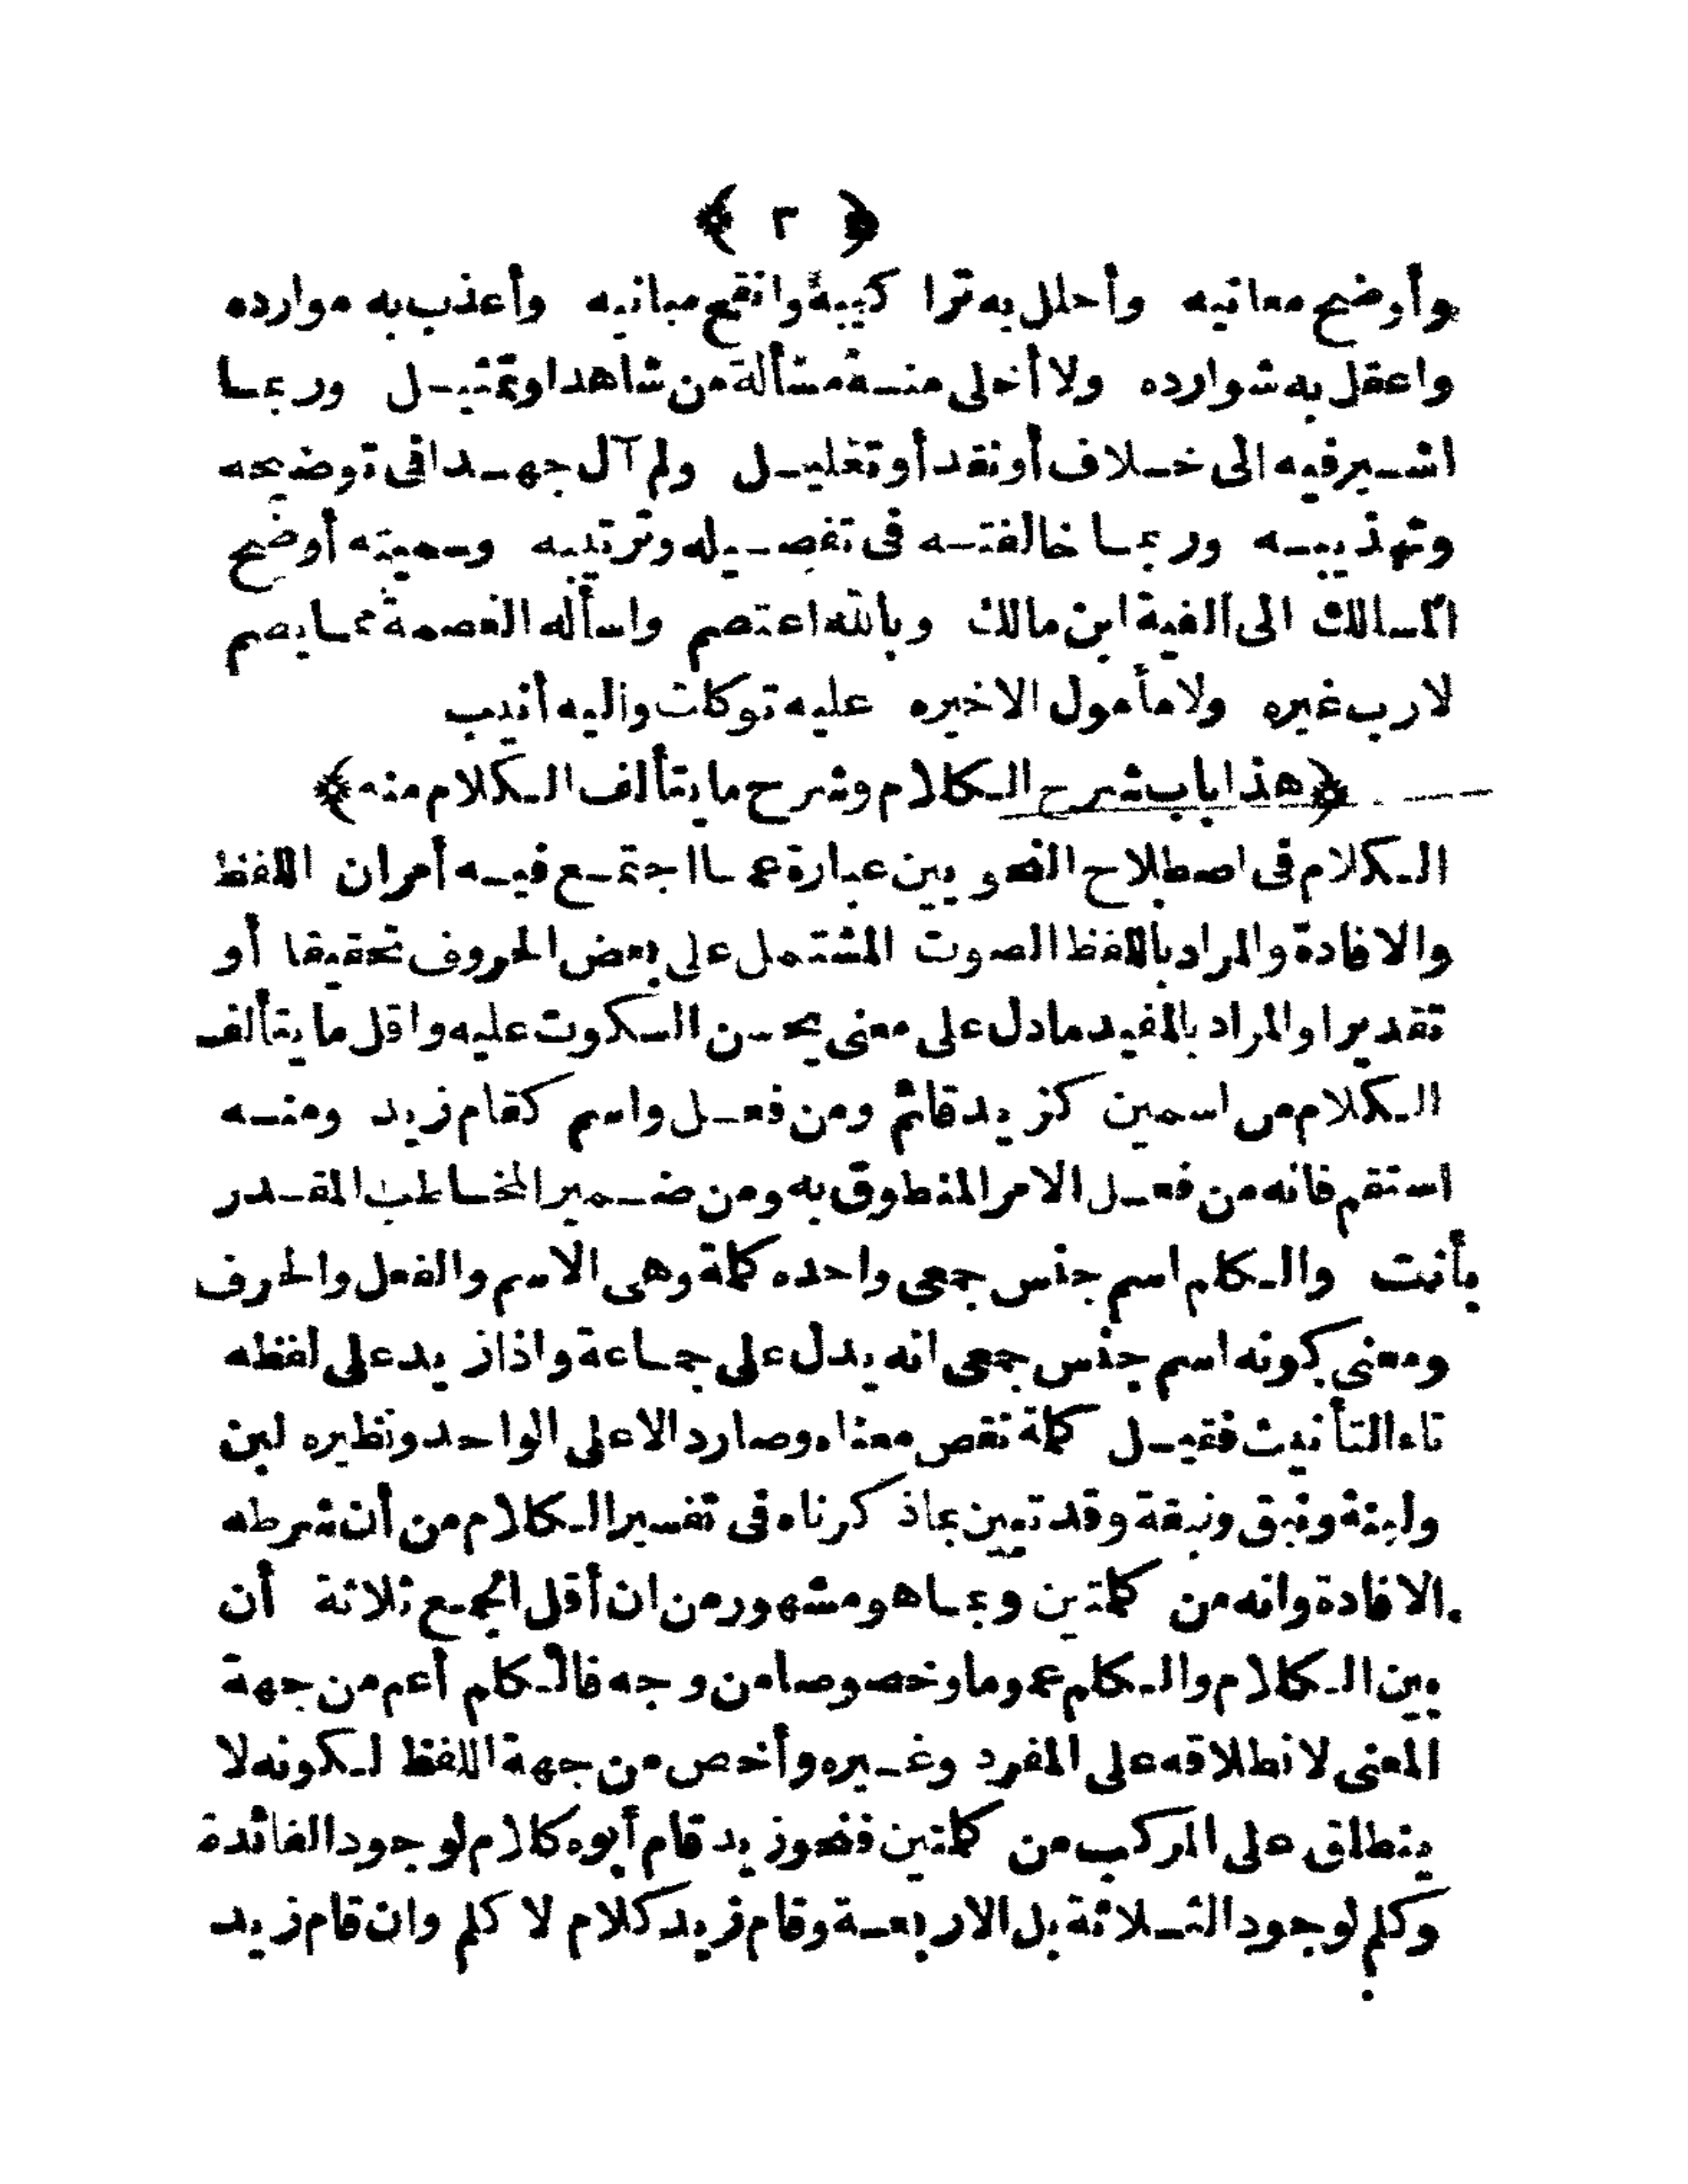 ﴿ ٢ ﴾
وأوضح معانيه وأحلل به تراكيبه وانقح مبانيه وأعذب به موارده
واعقل به شوارده ولا أخلى منه مسألة من شاهد او تمثيل وربما
اشير فيه الى خلاف أو نقد أو تعليل ولم آل جهدا فى توضيحه
وتهذيبه وربما خالفته فى تفصيله وترتيبه وسميته أوضح
المسالك الى ألفية ابن مالك وبالله اعتصم واسأله العصمة مما يصم
لا رب غيره ولا مأمول الا خيره عليه توكلت واليه أنيب
﴿هذا باب شرح الكلام وشرح ما يتألف الكلام منه﴾
الكلام فى اصطلاح النحويين عبارة عما اجتمع فيه أمران اللفظ
والافادة والمراد باللفظ الصوت المشتمل على بعض الحروف تحقيقا أو
تقديرا والمراد بالمفيد ما دل على معنى يحسن السكوت عليه واقل ما يتألف
الكلام من اسمين كزيد قائم ومن فعل واسم كقام زيد ومنه
استقم فانه من فعل الامر المنطوق به ومن ضمير المخاطب المقدر
بأنت والكلم اسم جنس جمعى واحده كلمة وهى الاسم والفعل والحرف
ومعنى كونه اسم جنس جمعى انه يدل على جماعة واذا زيد على لفظه
تاء التأنيث فقيل كلمة نقص معناه وصار دالا على الواحد ونظيره لبن
ولبنة ونبق ونبقة وقد تبين بما ذكرناه فى تفسير الكلام من أن شرطه
الافادة وانه من كلمتين وبما هو مشهور من ان أقل الجمع ثلاثة أن
بين الكلام والكلم عموما وخصوصا من وجه فالكلم أعم من جهة
المعنى لانطلاقه على المفرد وغيره وأخص من جهة اللفظ لكونه لا
ينطلق على المركب من كلمتين فنحو زيد قام أبوه كلام لوجود الفائدة
وكلم لوجود الثلاثة بل الاربعة وقام زيد كلام لا كلم وان قام زيد